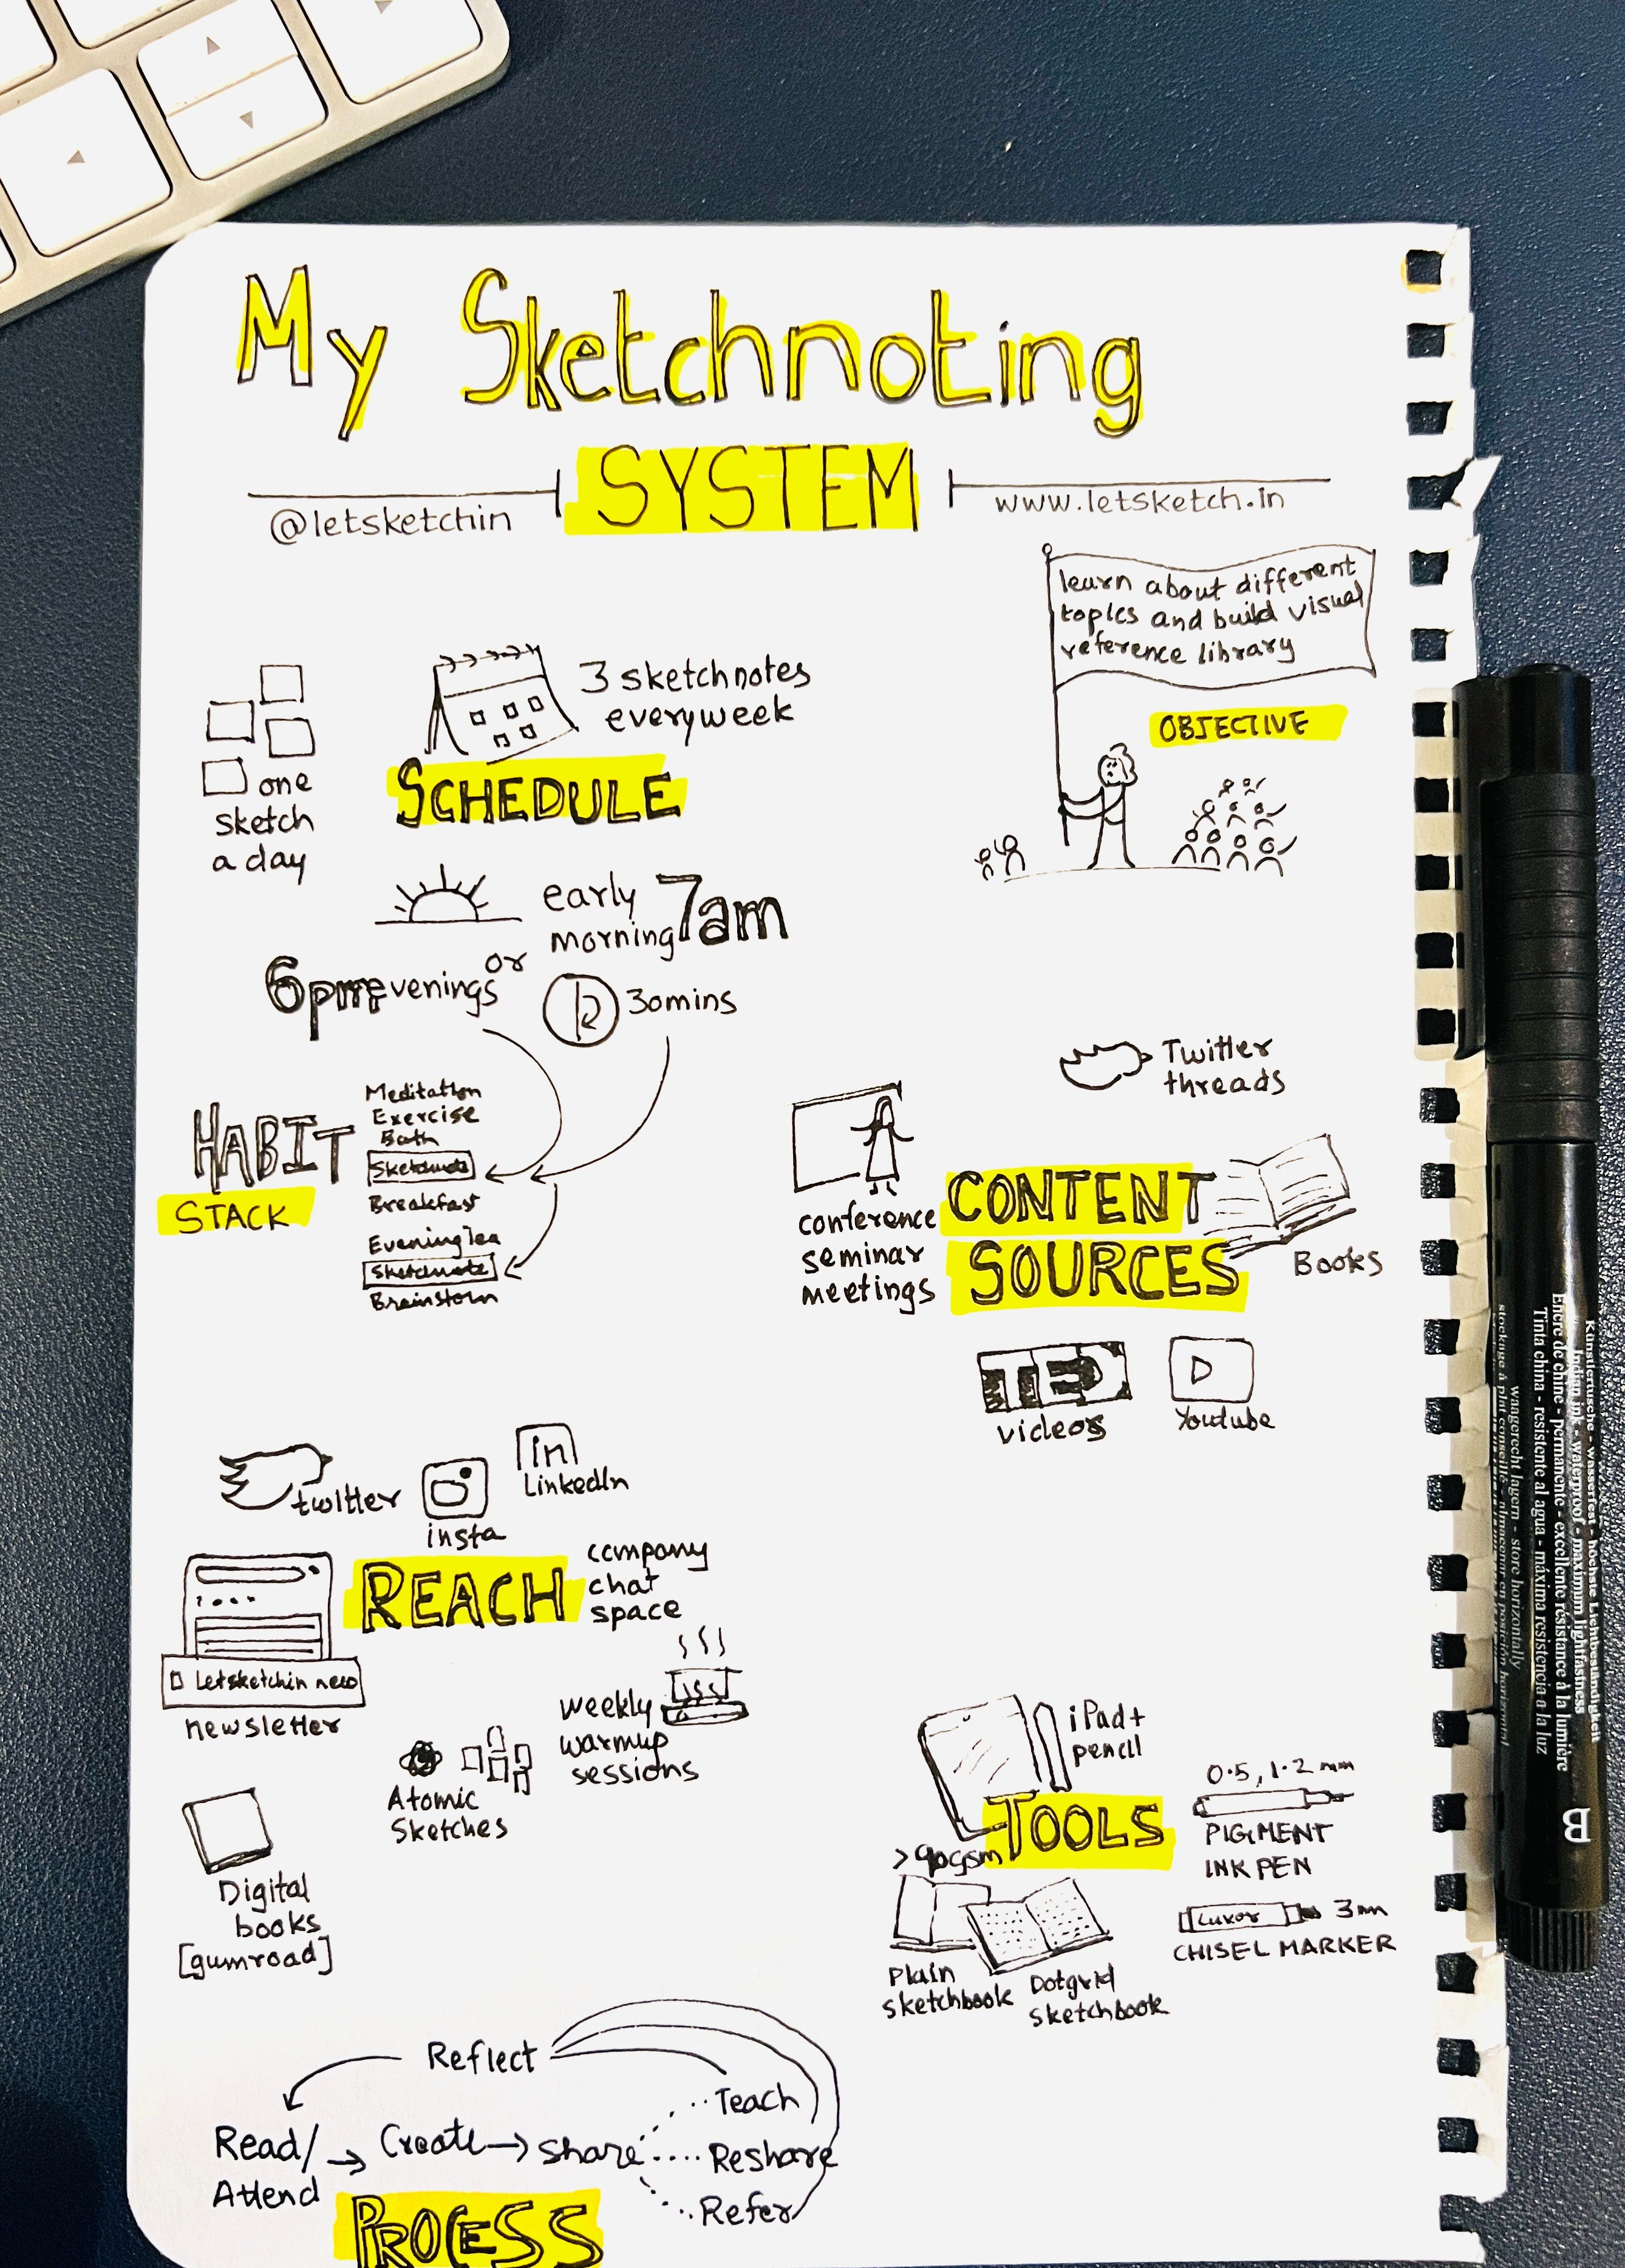 My Sketchnoting
SYSTEM
@letsketchin
www.letsketch.in
learn about different
topics and build visual
reference library
OBJECTIVE
3 sketchnotes
everyweek
SCHEDULE
one
sketch
a day
early
morning 7am
or
6pm evenings
30mins
HABIT
STACK
Meditation
Exercise
Bath
Sketchnote
Breakfast
Evening Tea
Sketchnote
Brainstorm
Twitter
threads
conference
seminar
meetings
CONTENT
SOURCES
Books
TED
videos
Youtube
twitter
insta
in
LinkedIn
REACH
company
chat
space
Letsketchin new
newsletter
weekly
warmup
sessions
Atomic
Sketches
Digital
books
[gumroad]
iPad+
pencil
TOOLS
0.5, 1.2 mm
PIGMENT
INK PEN
>90gsm
Luxor
3mm
CHISEL MARKER
Plain
sketchbook
Dotgrid
sketchbook
Reflect
Read/
Attend
Create
Share
Teach
Reshare
Refer
PROCESS
Encre de chine - permanente - excellente résistance à la lumière
Tinta china - resistente al agua - máxima resistencia a la luz
waagerecht lagern - store horizontally
B